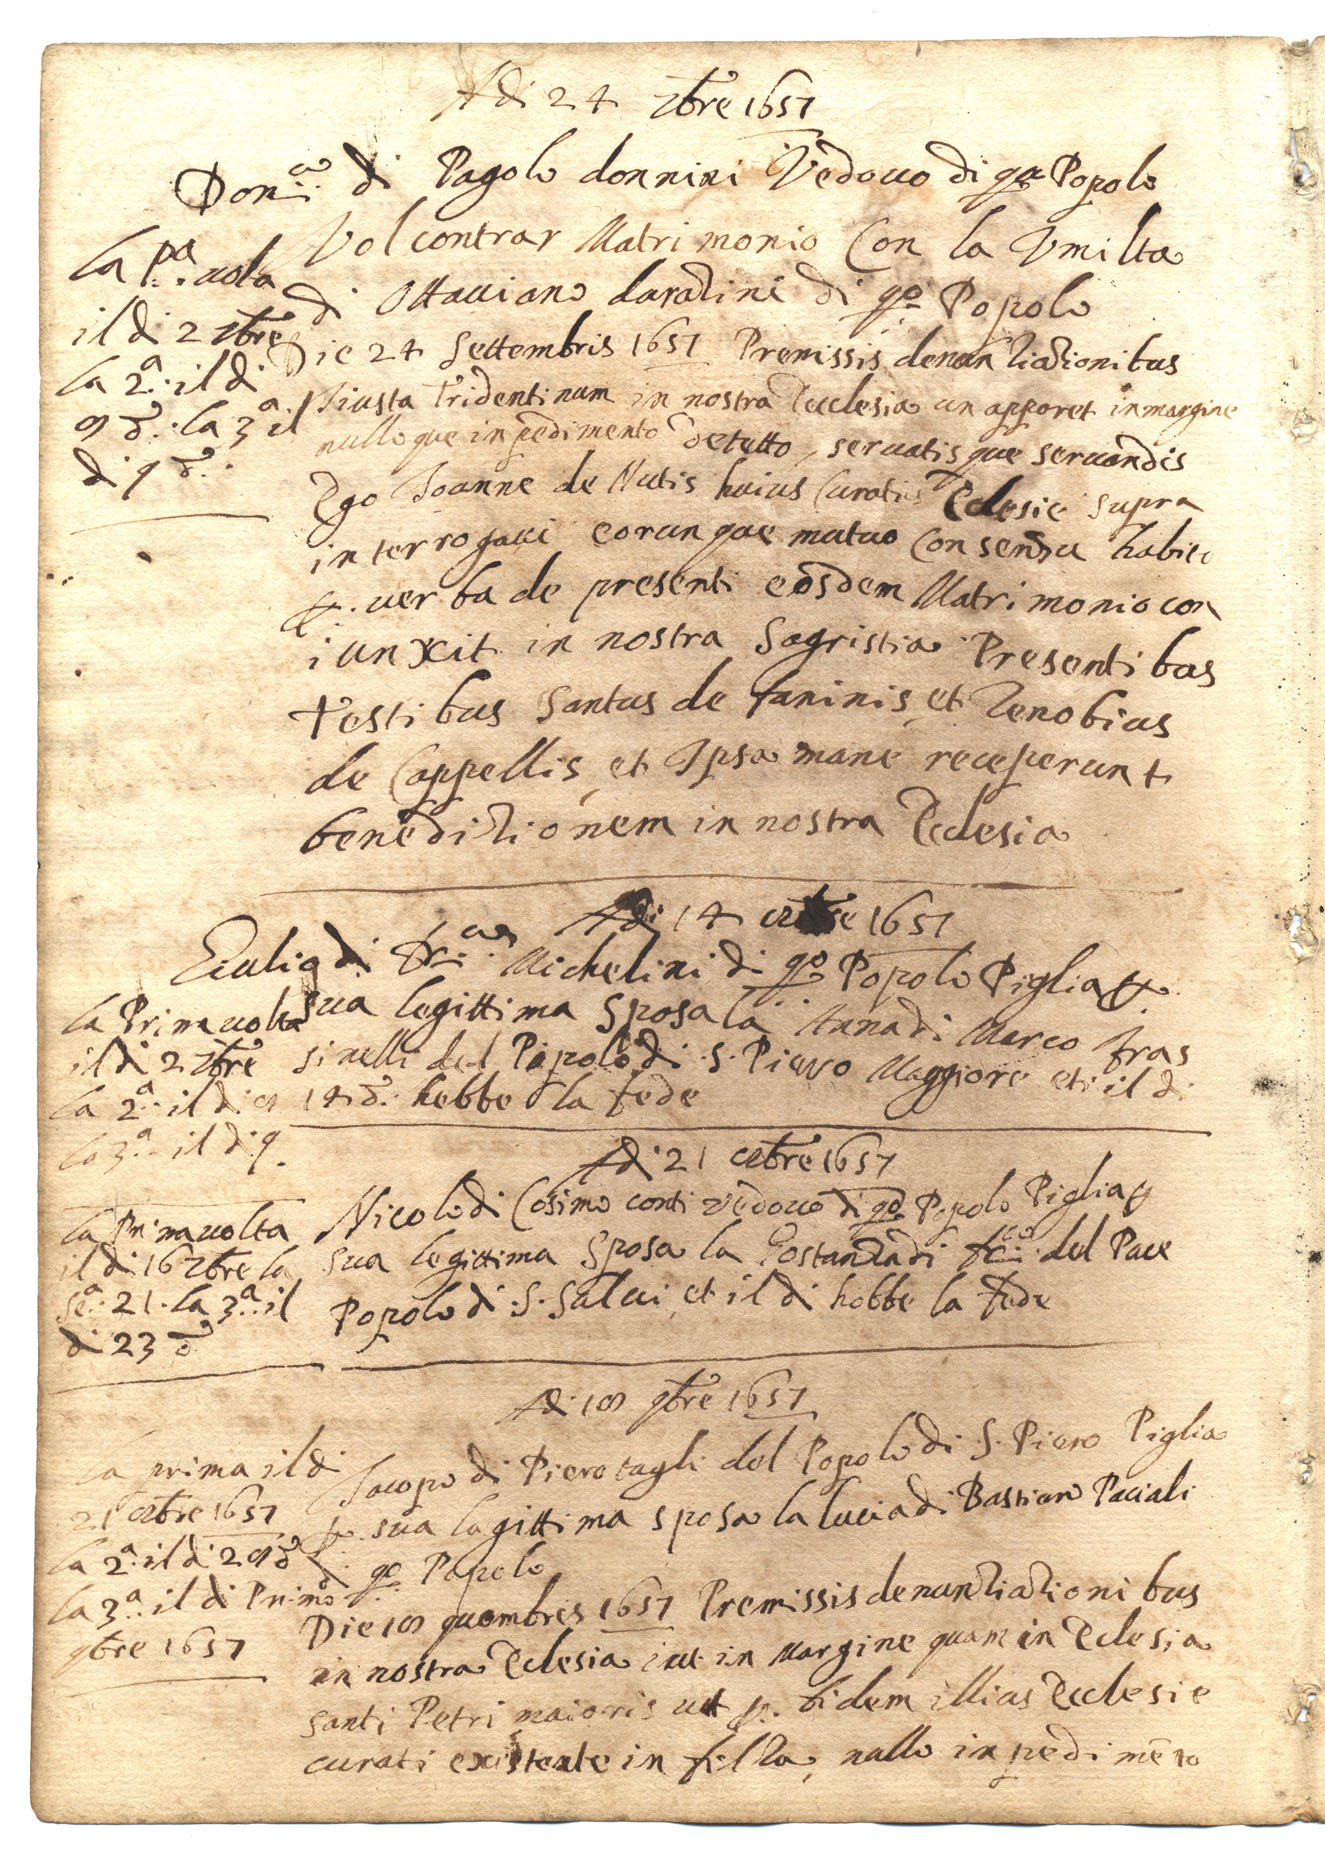 Adi 24 7bre 1657
Don.co di Pagolo donnini Vedouo di qo Popolo
Vol contrar Matrimonio Con la Vmilta
di Ottauiano daradini di qo Popolo
La pa uolta
il di 2 7bre
la 2a il di
8 do la 3a il
di 9 do
Die 24 Settembris 1657 Premissis denuntiationibus
Jiusta Tridentinum in nostra Ecclesia un apparet in margine
nulloque inpedimento detetto, seruatis que seruandis
Ego Joanne de Nutis huius Curatus Eclesie supra
interrogaui eorunque mutuo Consensu habito
p. uerba de presenti eosdem Matrimonio con
iunxit in nostra Sagristia Presentibus
testibus Santus de faninis et Zenobius
de Cappellis et Ipsa mane receperunt
beneditionem in nostra Ecclesia
Adi 14 8bre 1657
Giulio di fr.co Michelini di qo Popolo Piglia p
sua legittima Sposa la Anna di Marco fras
sinelli del Popolo di S. Piero Maggiore et il di
14 do hebbe la fede
la Prima uolta
il di 2 7bre
la 2a il di 8
la 3a il di 9
Adi 21 8bre 1657
Nicolo di Cosimo conti vedouo di qo Popolo Piglia p
sua legittima Sposa la Gostanza di fr.co del Pace
Popolo di S. Salui et il di hebbe la fede
la Prima uolta
il di 16 7bre la
se.a 21 la 3a il
di 23 do
Adi 18 9bre 1657
Jacopo di Piero tagli del Popolo di S. Piero Piglia
p. sua legittima sposa la lucia di Bastiano Paciali
di qo Popolo
la prima il di
21 8bre 1657
la 2a il di 28 do
la 3a il di Primo
9bre 1657
Die 18 quombres 1657 Premissis denuntiationibus
in nostra Eclesia iut in Margine quam in Eclesia
santi Petri maioris ut p. fidem illius Ecclesie
curati existente in filza, nullo inpedimeto